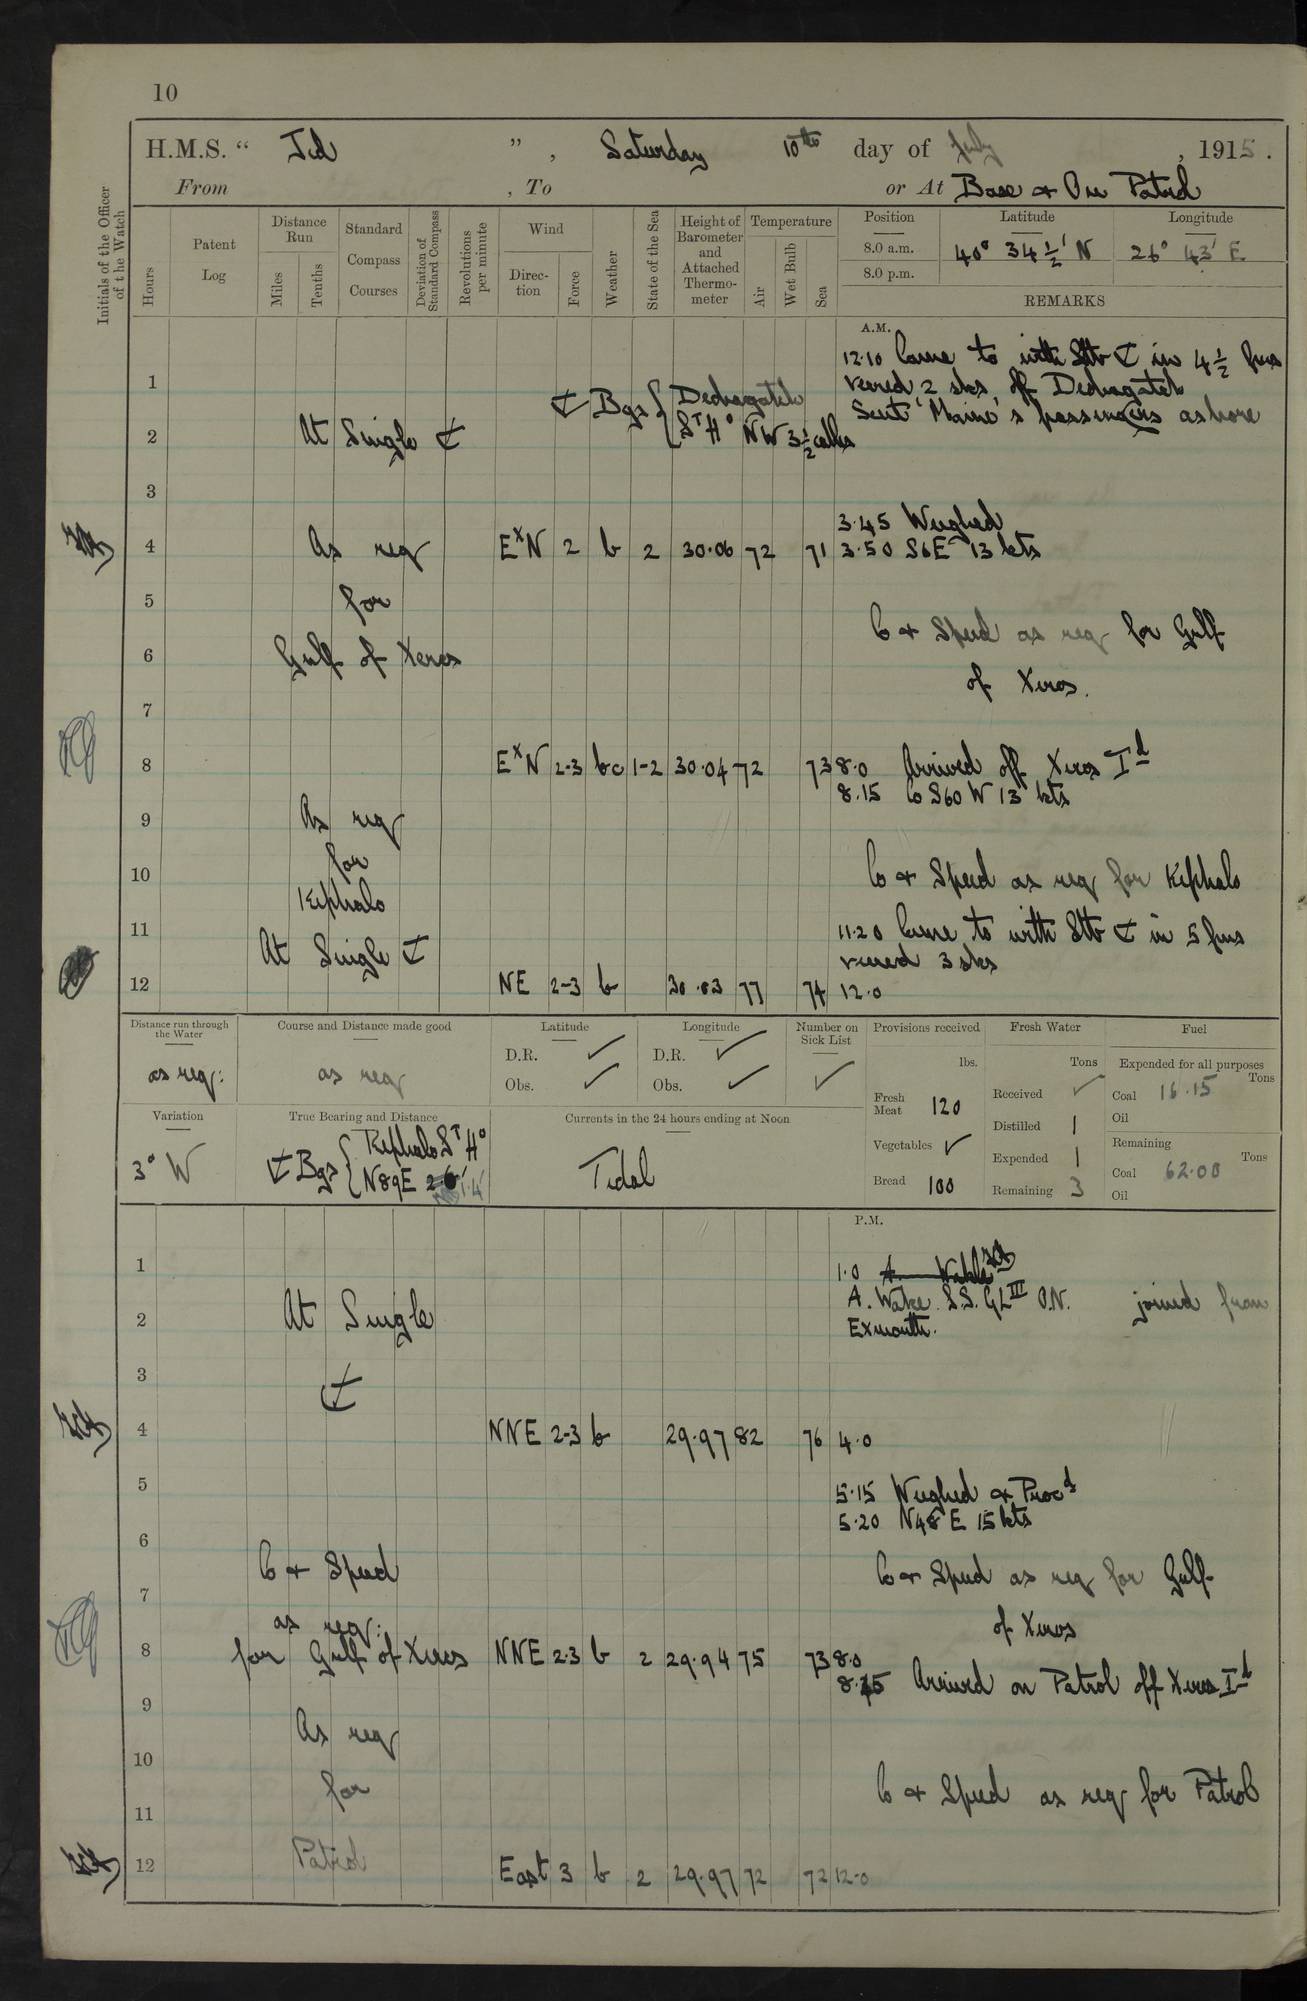 10
H.M.S. “ Jed ” , Saturday 10th day of July , 1915 .
From , To or At Base & On Patrol
Initials of the Officer of the Watch
Hours
Patent Log
Distance Run
Miles
Tenths
Standard Compass Courses
Deviation of Standard Compass
Revolutions per minute
Wind
Direction
Force
Weather
State of the Sea
Height of Barometer and Attached Thermometer
Temperature
Air
Wet Bulb
Sea
Position
8.0 a.m.
8.0 p.m.
Latitude
40° 34½' N
Longitude
26° 43' E.
REMARKS
A.M.
12.10 Came to with Stb ⚓ in 4½ fms
1 veered 2 shs off Dedeagatch
⚓ Bgs { Dedeagatch
Sent 'Maine's passengers ashore
2 At Single ⚓ Lt Ho NW 3½ cables
3
3.45 Weighed
4 As req ExN 2 b 2 30.06 72 71 3.50 S6E 13 kts
5 for
Co & Speed as req for Gulf
6 Gulf of Xeros
of Xeros.
7
8 ExN 2-3 bc 1-2 30.04 72 73 8.0 Arrived off Xeros Id
8.15 Co S60W 13 kts
9 As req
for
10 Co & Speed as req for Kephalo
Kephalo
11 At Single ⚓ 11.20 Came to with Stb ⚓ in 5 fms
veered 3 shs
12 NE 2-3 b 30.03 77 74 12.0
Distance run through the Water
as req:
Course and Distance made good
as req
Latitude
D.R. ✓
Obs. ✓
Longitude
D.R. ✓
Obs. ✓
Number on Sick List
✓
Provisions received
lbs.
Fresh Meat 120
Vegetables ✓
Bread 100
Fresh Water
Tons
Received ✓
Distilled 1
Expended 1
Remaining 3
Fuel
Expended for all purposes
Tons
Coal 16.15
Oil
Remaining
Tons
Coal 62.00
Oil
Variation
3° W
True Bearing and Distance
⚓ Bgs { Kephalo Lt Ho
N89E 1.4'
Currents in the 24 hours ending at Noon
Tidal
P.M.
1 1.0 A.
A. Wake. L.S. GL III O.N. joined from
2 At Single
Exmouth.
3 ⚓
4 NNE 2-3 b 29.97 82 76 4.0
5 5.15 Weighed & Procd
5.20 N48E 15 kts
6 Co & Speed Co & Speed as req for Gulf
7 as req: of Xeros
8 for Gulf of Xeros NNE 2.3 b 2 29.94 75 73 8.0
8.15 Arrived on Patrol off Xeros Id
9 As req
10 for
Co & Speed as req for Patrol
11
12 Patrol East 3 b 2 29.97 72 72 12.0